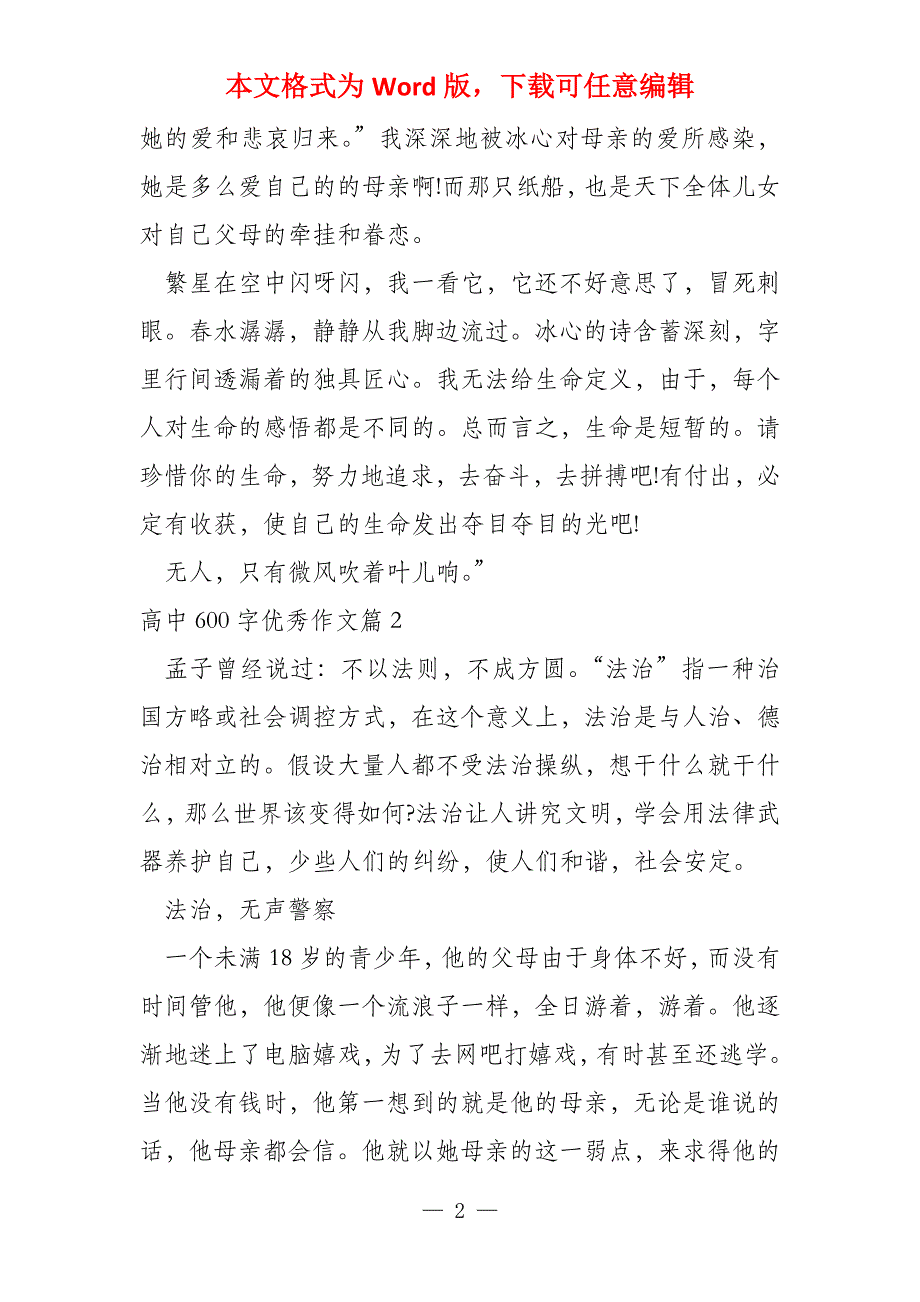 本文格式为 Word 版，下载可任意编辑
她的爱和悲哀归来。”我深深地被冰心对母亲的爱所感染，
她是多么爱自己的的母亲啊!而那只纸船，也是天下全体儿女
对自己父母的牵挂和眷恋。
繁星在空中闪呀闪，我一看它，它还不好意思了，冒死刺
眼。春水潺潺，静静从我脚边流过。冰心的诗含蓄深刻，字
里行间透漏着的独具匠心。我无法给生命定义，由于，每个
人对生命的感悟都是不同的。总而言之，生命是短暂的。请
珍惜你的生命，努力地追求，去奋斗，去拼搏吧!有付出，必
定有收获，使自己的生命发出夺目夺目的光吧!
无人，只有微风吹着叶儿响。”
高中 600 字优秀作文篇 2
孟子曾经说过：不以法则，不成方圆。“法治”指一种治
国方略或社会调控方式，在这个意义上，法治是与人治、德
治相对立的。假设大量人都不受法治操纵，想干什么就干什
么，那么世界该变得如何?法治让人讲究文明，学会用法律武
器养护自己，少些人们的纠纷，使人们和谐，社会安定。
法治，无声警察
一个未满 18 岁的青少年，他的父母由于身体不好，而没有
时间管他，他便像一个流浪子一样，全日游着，游着。他逐
渐地迷上了电脑嬉戏，为了去网吧打嬉戏，有时甚至还逃学。
当他没有钱时，他第一想到的就是他的母亲，无论是谁说的
话，他母亲都会信。他就以她母亲的这一弱点，来求得他的
— 2 —